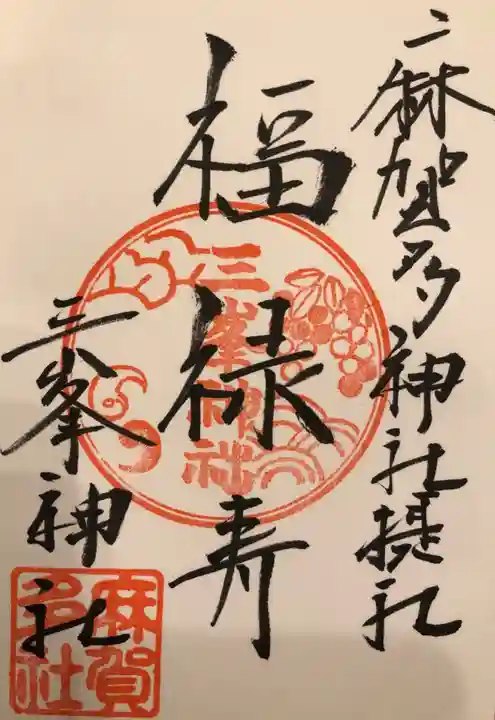 二麻賀多神社摂社
福禄寿
三峯神社
三峯神社
麻賀多社